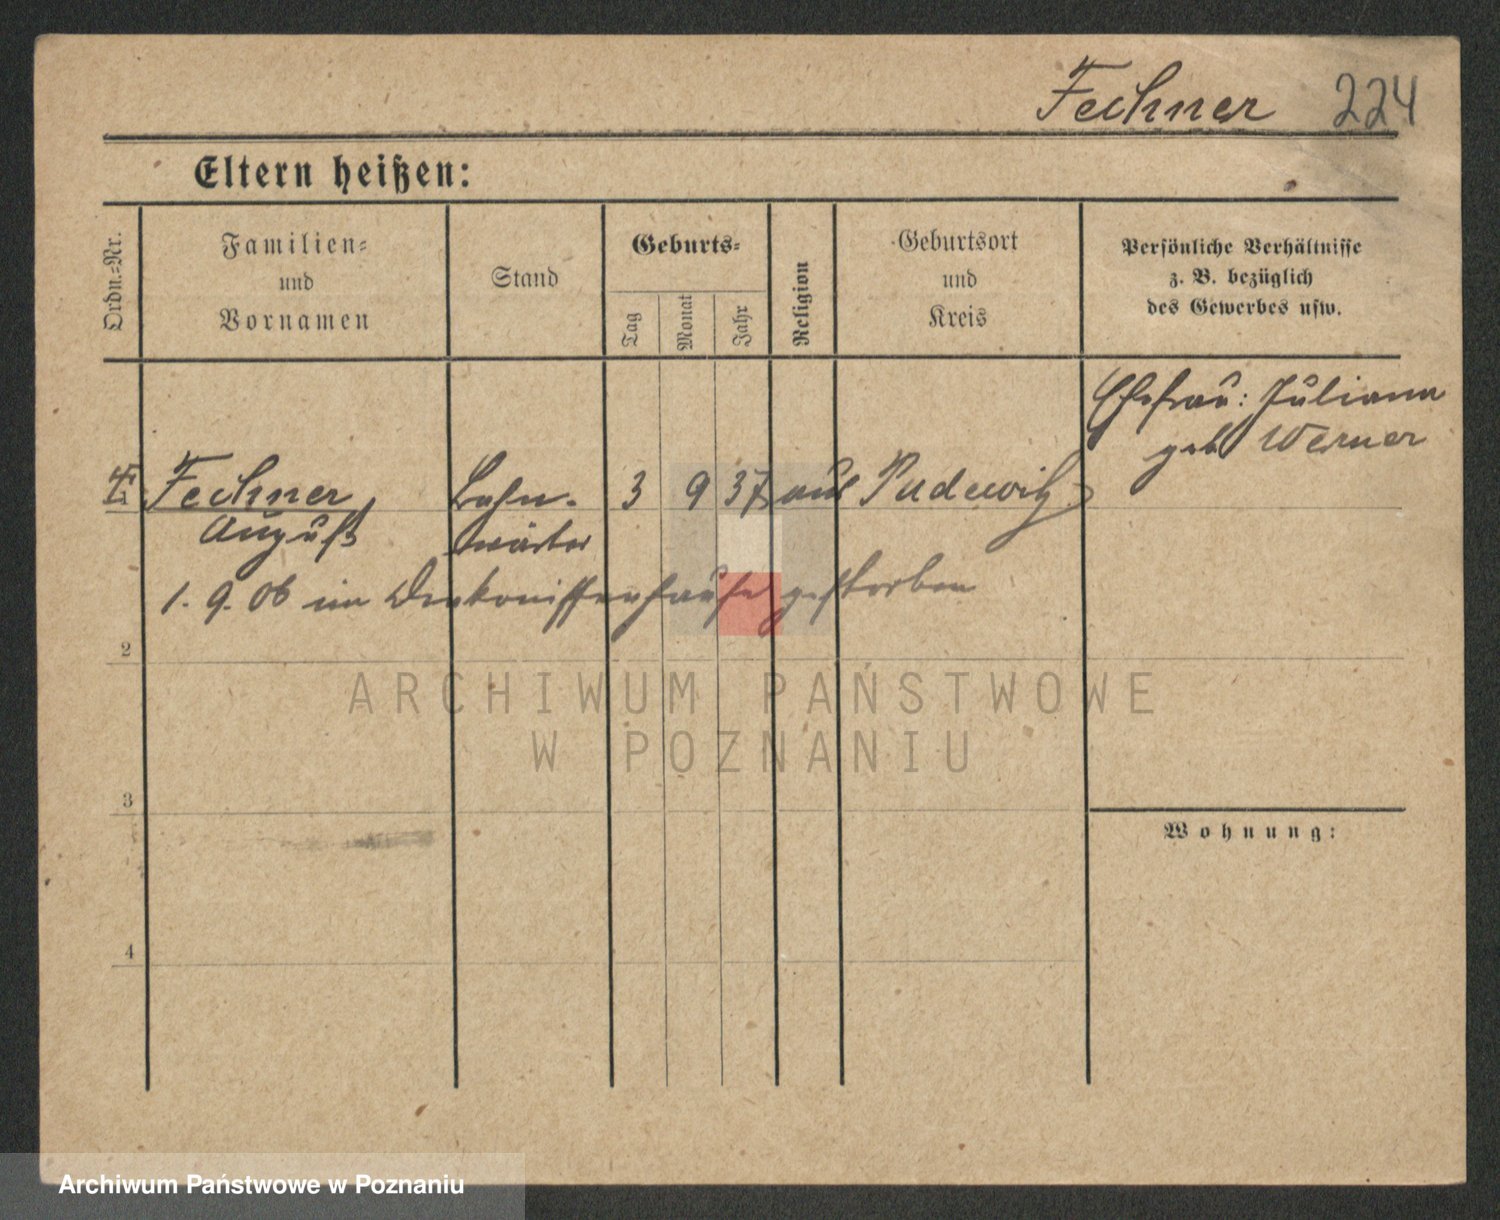 Fechner 224
Eltern heißen:
Ordn.-Nr.
Familien- und Vornamen
Stand
Geburts-
Tag
Monat
Jahr
Religion
Geburtsort und Kreis
Persönliche Verhältnisse
z. B. bezüglich
des Gewerbes usw.
Ehefrau: Juliann
geb Werner
Fechner Bahn- 3 9 37 aus Pudewitz
August wärter
1. 9. 06 im Diakonissenhause gestorben
2
3
4
Wohnung:
ARCHIWUM PAŃSTWOWE
W POZNANIU
Archiwum Państwowe w Poznaniu